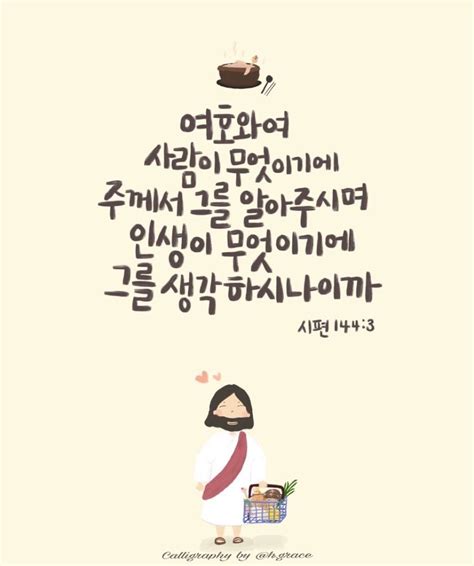 여호와여
사람이 무엇이기에
주께서 그를 알아주시며
인생이 무엇이기에
그를 생각하시나이까
시편 144:3
Calligraphy by @h.grace